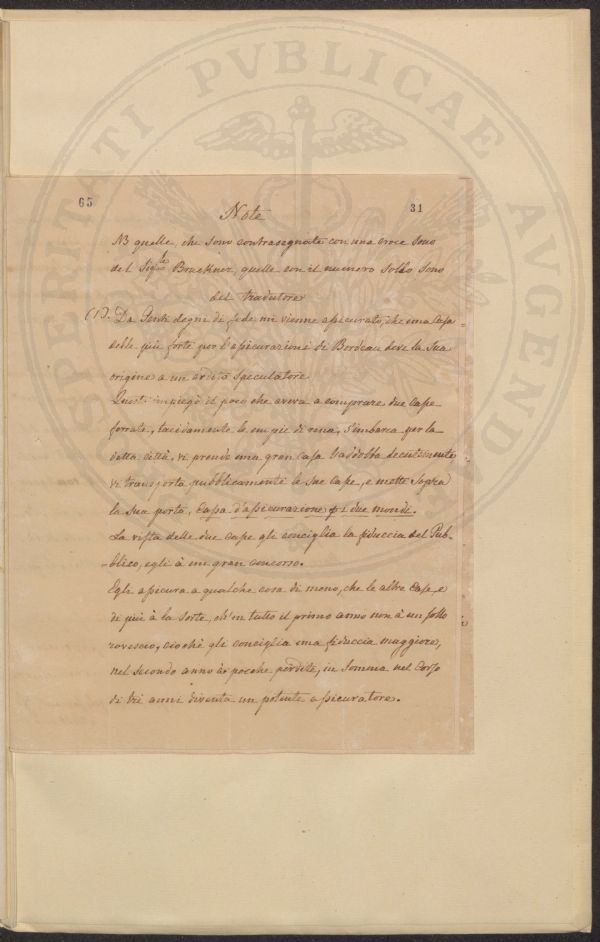 PROSPERITATI PVBLICAE AVGENDAE
65
31
Note
NB quelle, che sono contrasegnate con una croce sono
del Sig.re Bruckner, quelle con il numero solo sono
del traduttore
(1). Da Gente degni di fede mi vienne assicurato, che una Casa
delle più forte per l'assicurazioni di Bordeau deve la sua
origine a un ardito speculatore
Questi impiegò il poco che aveva a comprare due Casse
ferrate, tacidamente le empie di rena, s'imbarca per la
detta città, vi prende una gran casa l'addobba decentemente,
vi transporta pubblicamente le sue Casse, e mette sopra
la sua porta, Cassa d'assicurazione p i due mondi.
La vista delle due casse gli conciglia la fiduccia del Pub-
blico, egli à un gran concorso.
Egli assicura a qualche cosa di meno, che le altre Case, e
di più à la sorte, ch'in tutto il primo anno non à un sollo
rovescio, ciochè gli conciglia una fiduccia maggiore,
nel secondo anno à pocche perdite, in somma nel Corso
di trè anni diventa un potente assicuratore.